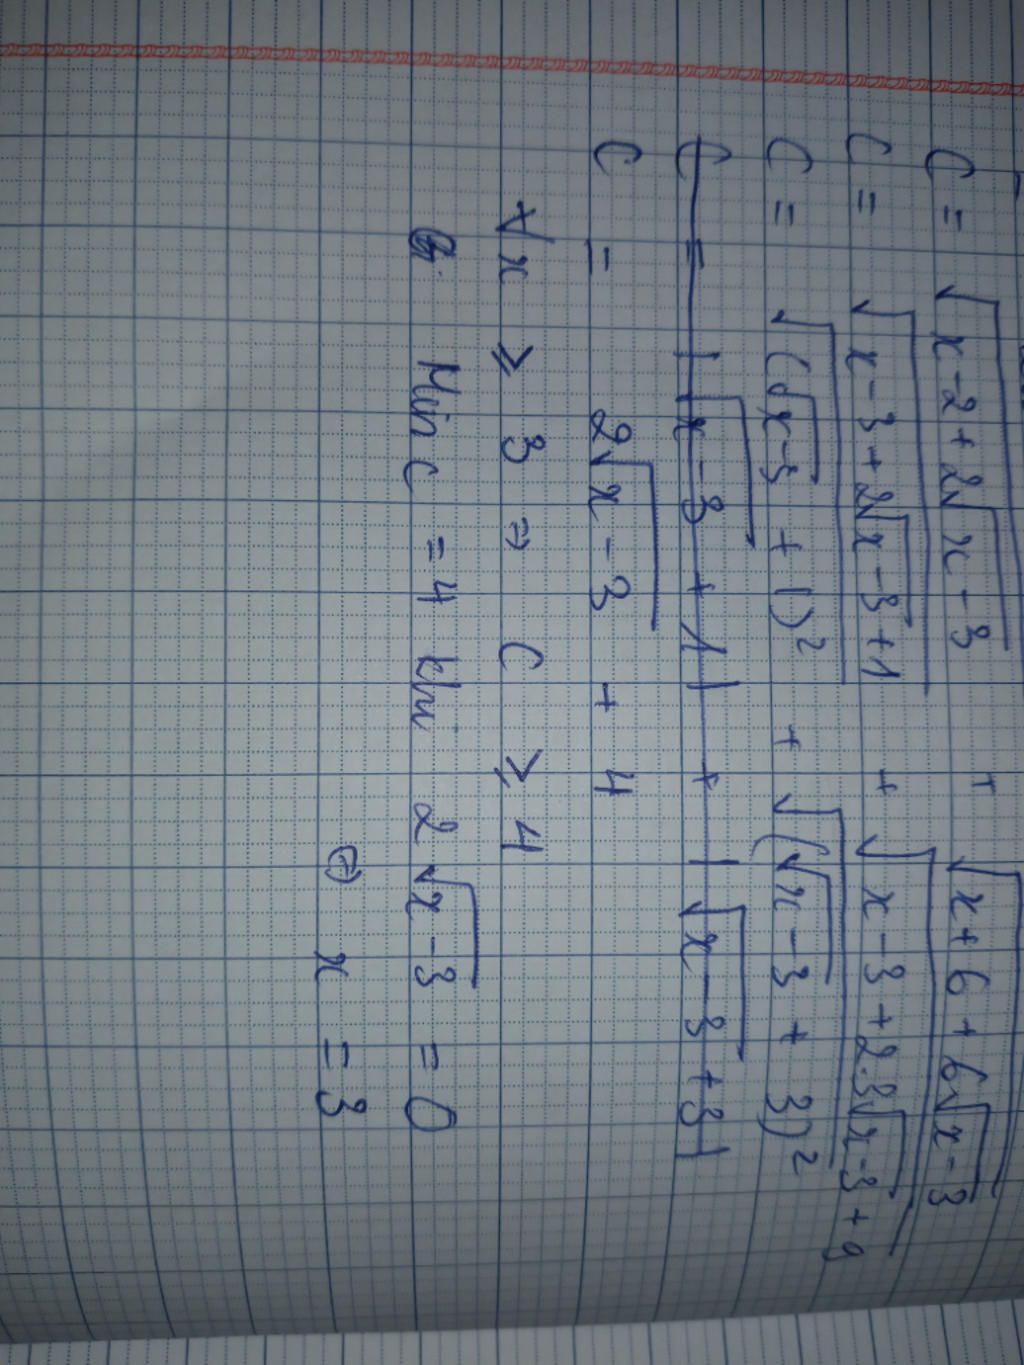 C = √(x-2+2√(x-3)) + √(x+6+6√(x-3))
C = √(x-3+2√(x-3)+1) + √(x-3+2.3√(x-3)+9)
C = √((√(x-3)+1)²) + √((√(x-3)+3)²)
C = |√(x-3)+1| + |√(x-3)+3|
C = 2√(x-3) + 4
∀x ≥ 3 ⇒ C ≥ 4
Min C = 4 khi 2√(x-3) = 0
⇔ x = 3